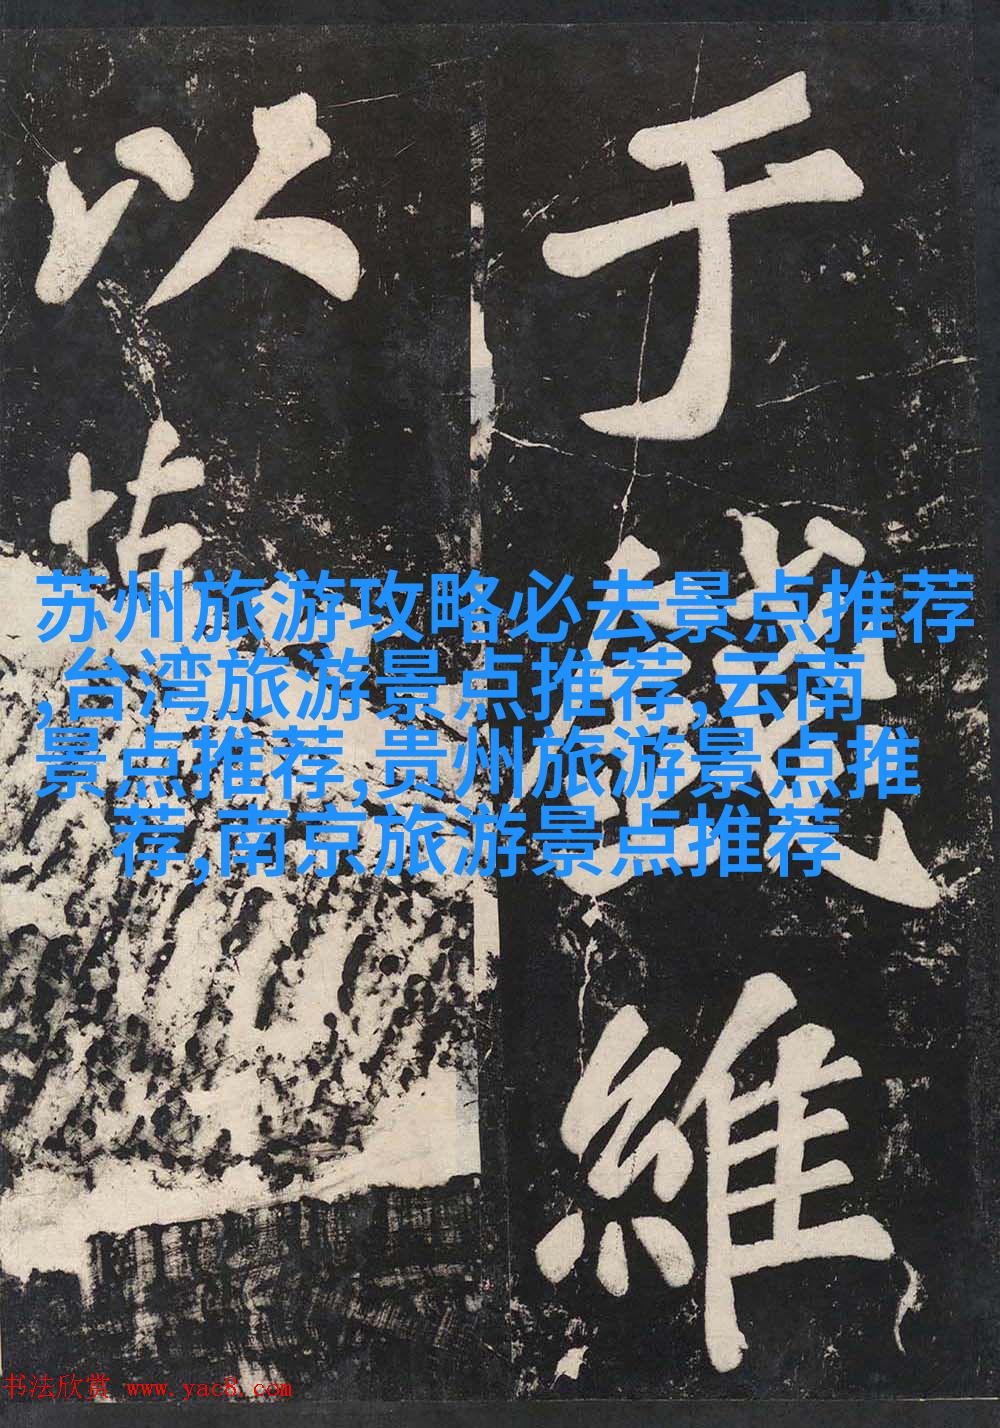 于钱維
以怙
苏州旅游攻略必去景点推荐
,台湾旅游景点推荐,云南
景点推荐,贵州旅游景点推
荐,南京旅游景点推荐
书法欣赏 www.yac8.com